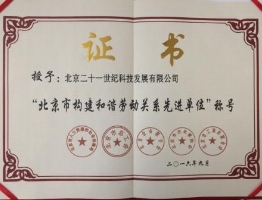 证书
授予：北京二十一世纪科技发展有限公司
“北京市构建和谐劳动关系先进单位”称号
二〇一六年九月